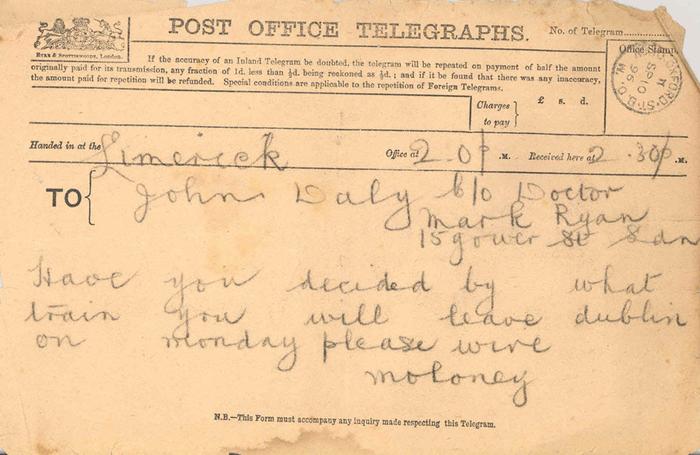 POST OFFICE TELEGRAPHS.
No. of Telegram
Eyre & Spottiswoode, London.
Office Stamp.
If the accuracy of an Inland Telegram be doubted, the telegram will be repeated on payment of half the amount
originally paid for its transmission, any fraction of 1d. less than ½d. being reckoned as ½d.; and if it be found that there was any inaccuracy,
the amount paid for repetition will be refunded. Special conditions are applicable to the repetition of Foreign Telegrams.
Charges to pay } £ s. d.
Handed in at the Limerick Office at 2 0 p .M. Received here at 2.30 p .M.
TO { John Daly c/o Doctor
Mark Ryan
15 gower St Ldn
Have you decided by what
train you will leave dublin
on monday please wire
moloney
N.B.—This Form must accompany any inquiry made respecting this Telegram.